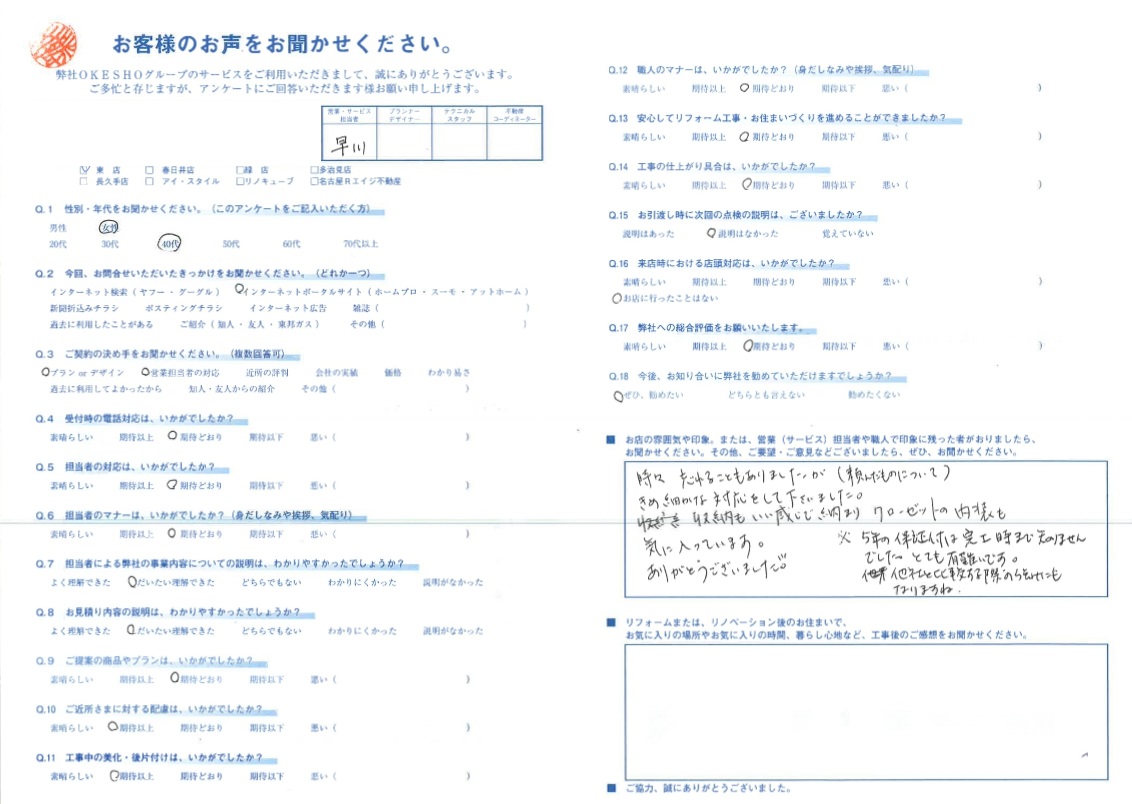 お客様のお声をお聞かせください。
弊社OKESHOグループのサービスをご利用いただきまして、誠にありがとうございます。
ご多忙と存じますが、アンケートにご回答いただきます様お願い申し上げます。
営業・サービス担当者 プランナーデザイナー テクニカルスタッフ 不動産コーディネーター
早川
☑ 東 店 □ 春日井店 □緑 店 □多治見店
□ 長久手店 □ アイ・スタイル □リノキューブ □名古屋Rエイジ不動産
Q.1 性別・年代をお聞かせください。(このアンケートをご記入いただく方)
男性 女性
20代 30代 40代 50代 60代 70代以上
Q.2 今回、お問合せいただいたきっかけをお聞かせください。(どれか一つ)
インターネット検索(ヤフー・グーグル) インターネットポータルサイト(ホームプロ・スーモ・アットホーム)
新聞折込みチラシ ポスティングチラシ インターネット広告 雑誌( )
過去に利用したことがある ご紹介(知人・友人・東邦ガス) その他( )
Q.3 ご契約の決め手をお聞かせください。(複数回答可)
プラン or デザイン 営業担当者の対応 近所の評判 会社の実績 価格 わかり易さ
過去に利用してよかったから 知人・友人からの紹介 その他( )
Q.4 受付時の電話対応は、いかがでしたか?
素晴らしい 期待以上 期待どおり 期待以下 悪い( )
Q.5 担当者の対応は、いかがでしたか?
素晴らしい 期待以上 期待どおり 期待以下 悪い( )
Q.6 担当者のマナーは、いかがでしたか?(身だしなみや挨拶、気配り)
素晴らしい 期待以上 期待どおり 期待以下 悪い( )
Q.7 担当者による弊社の事業内容についての説明は、わかりやすかったでしょうか?
よく理解できた だいたい理解できた どちらでもない わかりにくかった 説明がなかった
Q.8 お見積り内容の説明は、わかりやすかったでしょうか?
よく理解できた だいたい理解できた どちらでもない わかりにくかった 説明がなかった
Q.9 ご提案の商品やプランは、いかがでしたか?
素晴らしい 期待以上 期待どおり 期待以下 悪い( )
Q.10 ご近所さまに対する配慮は、いかがでしたか?
素晴らしい 期待以上 期待どおり 期待以下 悪い( )
Q.11 工事中の美化・後片付けは、いかがでしたか?
素晴らしい 期待以上 期待どおり 期待以下 悪い( )
Q.12 職人のマナーは、いかがでしたか?(身だしなみや挨拶、気配り)
素晴らしい 期待以上 期待どおり 期待以下 悪い( )
Q.13 安心してリフォーム工事・お住まいづくりを進めることができましたか?
素晴らしい 期待以上 期待どおり 期待以下 悪い( )
Q.14 工事の仕上がり具合は、いかがでしたか?
素晴らしい 期待以上 期待どおり 期待以下 悪い( )
Q.15 お引渡し時に次回の点検の説明は、ございましたか?
説明はあった 説明はなかった 覚えていない
Q.16 来店時における店頭対応は、いかがでしたか?
素晴らしい 期待以上 期待どおり 期待以下 悪い( )
お店に行ったことはない
Q.17 弊社への総合評価をお願いいたします。
素晴らしい 期待以上 期待どおり 期待以下 悪い( )
Q.18 今後、お知り合いに弊社を勧めていただけますでしょうか?
ぜひ、勧めたい どちらとも言えない 勧めたくない
■ お店の雰囲気や印象。または、営業(サービス)担当者や職人で印象に残った者がおりましたら、
お聞かせください。その他、ご要望・ご意見などございましたら、ぜひ、お聞かせください。
時々 忘れることもありましたが(頼んだものについて)
きめ細かな対応をして下さいました。
収納もいい感じで納まり クローゼットの内装も
気に入っています。
ありがとうございました。
※ 5年の保証付は完工時まで知りません
でした。とても有難いです。
他社と比較する際の分けにも
なりますね.
■ リフォームまたは、リノベーション後のお住まいで、
お気に入りの場所やお気に入りの時間、暮らし心地など、工事後のご感想をお聞かせください。
■ ご協力、誠にありがとうございました。